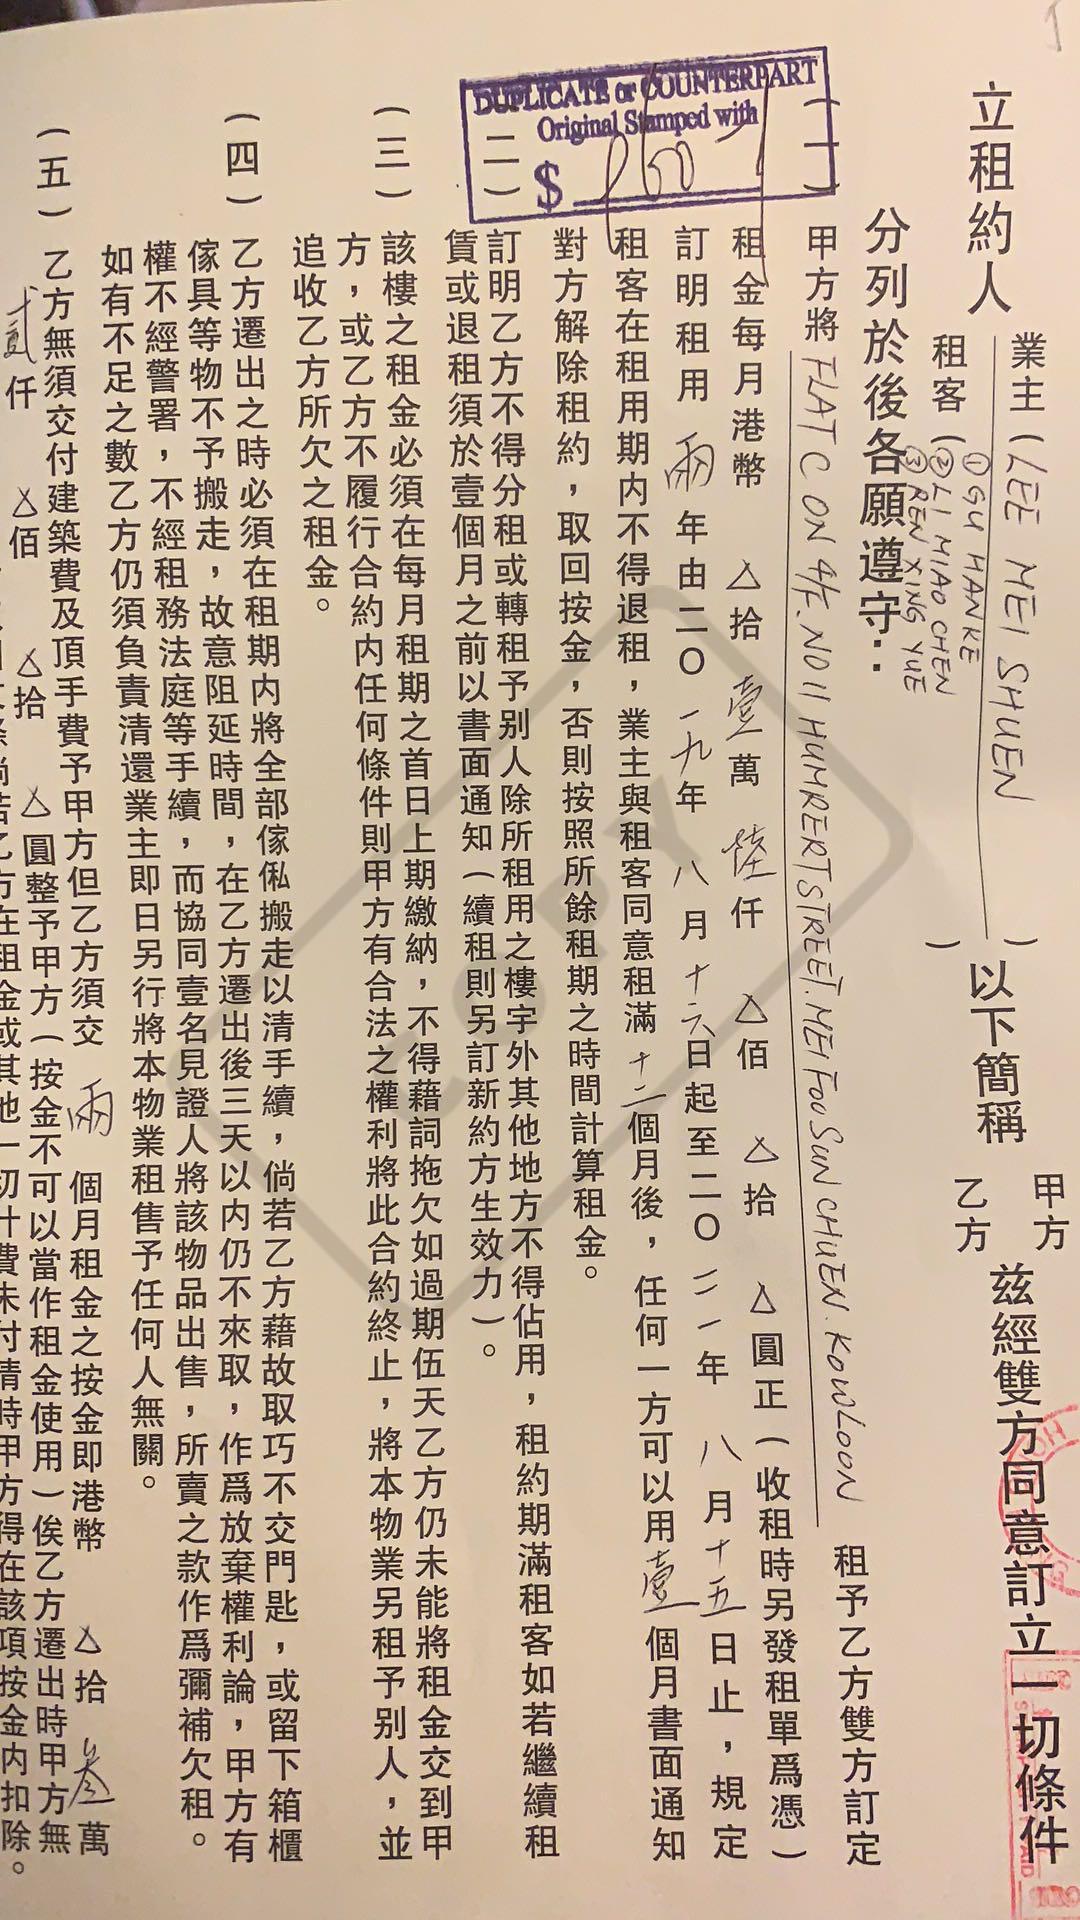 立租約人
業主（LEE MEI SHUEN）
租客（①GU HANKE
②LI MIAO CHEN
③REN XING YUE）
以下簡稱
甲方
乙方
兹經雙方同意訂立一切條件
分列於後各願遵守：
DUPLICATE or COUNTERPART
Original Stamped with
$
（一）甲方將 FLAT C ON 4/F. NO 11 HUMPRERT STREET. MEI FOO SUN CHUEN. KOWLOON 租予乙方雙方訂定
租金每月港幣 △拾 壹萬 陸仟 △佰 △拾 △圓正（收租時另發租單爲憑）
訂明租用 兩 年由二〇一九年 八月十六日起至二〇二一年 八月十五日止，規定
租客在租用期内不得退租，業主與租客同意租滿十二個月後，任何一方可以用壹個月書面通知
對方解除租約，取回按金，否則按照所餘租期之時間計算租金。
（二）訂明乙方不得分租或轉租予别人除所租用之樓宇外其他地方不得佔用，租約期滿租客如若繼續租
賃或退租須於壹個月之前以書面通知（續租則另訂新約方生效力）。
（三）該樓之租金必須在每月租期之首日上期繳納，不得藉詞拖欠如過期伍天乙方仍未能將租金交到甲
方，或乙方不履行合約内任何條件則甲方有合法之權利將此合約終止，將本物業另租予别人，並
追收乙方所欠之租金。
（四）乙方遷出之時必須在租期内將全部傢俬搬走以清手續，倘若乙方藉故取巧不交門匙，或留下箱櫃
傢具等物不予搬走，故意阻延時間，在乙方遷出後三天以内仍不來取，作爲放棄權利論，甲方有
權不經警署，不經租務法庭等手續，而協同壹名見證人將該物品出售，所賣之款作爲彌補欠租。
如有不足之數乙方仍須負責清還業主即日另行將本物業租售予任何人無關。
（五）乙方無須交付建築費及頂手費予甲方但乙方須交 兩 個月租金之按金即港幣 △拾 叁萬
貳仟 △佰 △拾 △圓整予甲方（按金不可以當作租金使用）俟乙方遷出時甲方無
倘若乙方在租金或其他一切什費未付清時甲方得在該項按金内扣除。
COPY